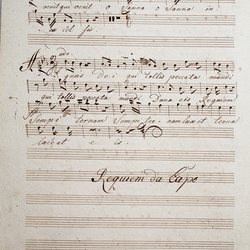 venit qui venit O Sanna O Sanna in
Ado
Agnus Dei qui tollis peccata mundi
qui tollis peccata mundi Dona eis Requiem
Sempiternam Sempiternam lux et
luceat eis
Requiem da Capo